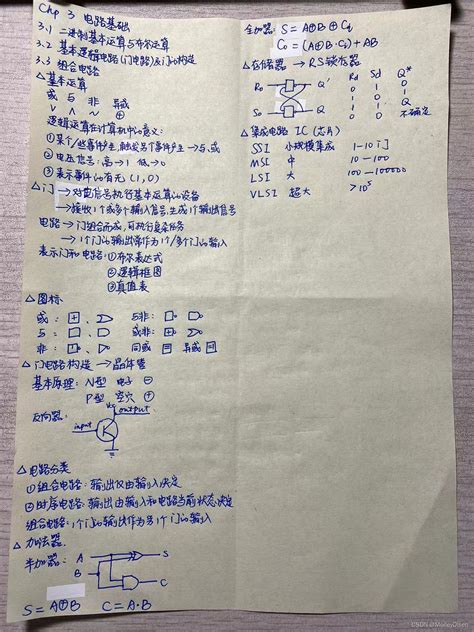 Chp 3 电路基础
3.1 二进制基本运算与布尔运算
3.2 基本逻辑电路(门电路)及门的构造
3.3 组合电路
△基本运算
或 与 非 异或
∨ ∧ ~ ⊕
逻辑运算在计算机中的意义:
①某个/些事件发生,触发另个事件发生→与、或
②电压信号:高→1 低→0
③表示事件的有无(1,0)
△门→对电信号执行基本运算的设备
→接收1个或多个输入信号,生成1个输出信号
电路→门组合而成,可执行复杂任务
→1个门的输出常作为1个/多个门的输入
表示门和电路:①布尔表达式
②逻辑框图
③真值表
△图标
或: + 、 与非:
与: 、 或非: +
非: 1 、 同或 = 异或
△门电路构造→晶体管
基本原理: N型 电子 ⊖
P型 空穴 ⊕
output
反向器:
input
△电路分类
①组合电路:输出仅由输入决定
②时序电路:输出由输入和电路当前状态决定
组合电路:1个门的输出作为另1个门的输入
△加法器
半加器: A S
B C
S=A⊕B C=A·B
全加器: S=A⊕B⊕Ci
Co=(A⊕B·Ci)+AB
△存储器→RS锁存器
Rd Sd Q*
0 1 0
1 0 1
1 1 Q
0 0 不确定
△集成电路 IC(芯片)
SSI 小规模集成 1-10门
MSI 中 10-100
LSI 大 100-100000
VLSI 超大 >10⁵
CSDN @MorleyOlsen